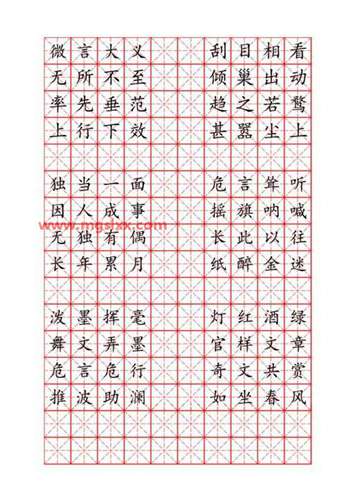 微言大义 刮目相看
无所不至 倾巢出动
率先垂范 趋之若鹜
上行下效 甚嚣尘上
独当一面 危言耸听
因人成事 摇旗呐喊
www.mgslxx.com
无独有偶 长此以往
长年累月 纸醉金迷
泼墨挥毫 灯红酒绿
舞文弄墨 官样文章
危言危行 奇文共赏
推波助澜 如坐春风